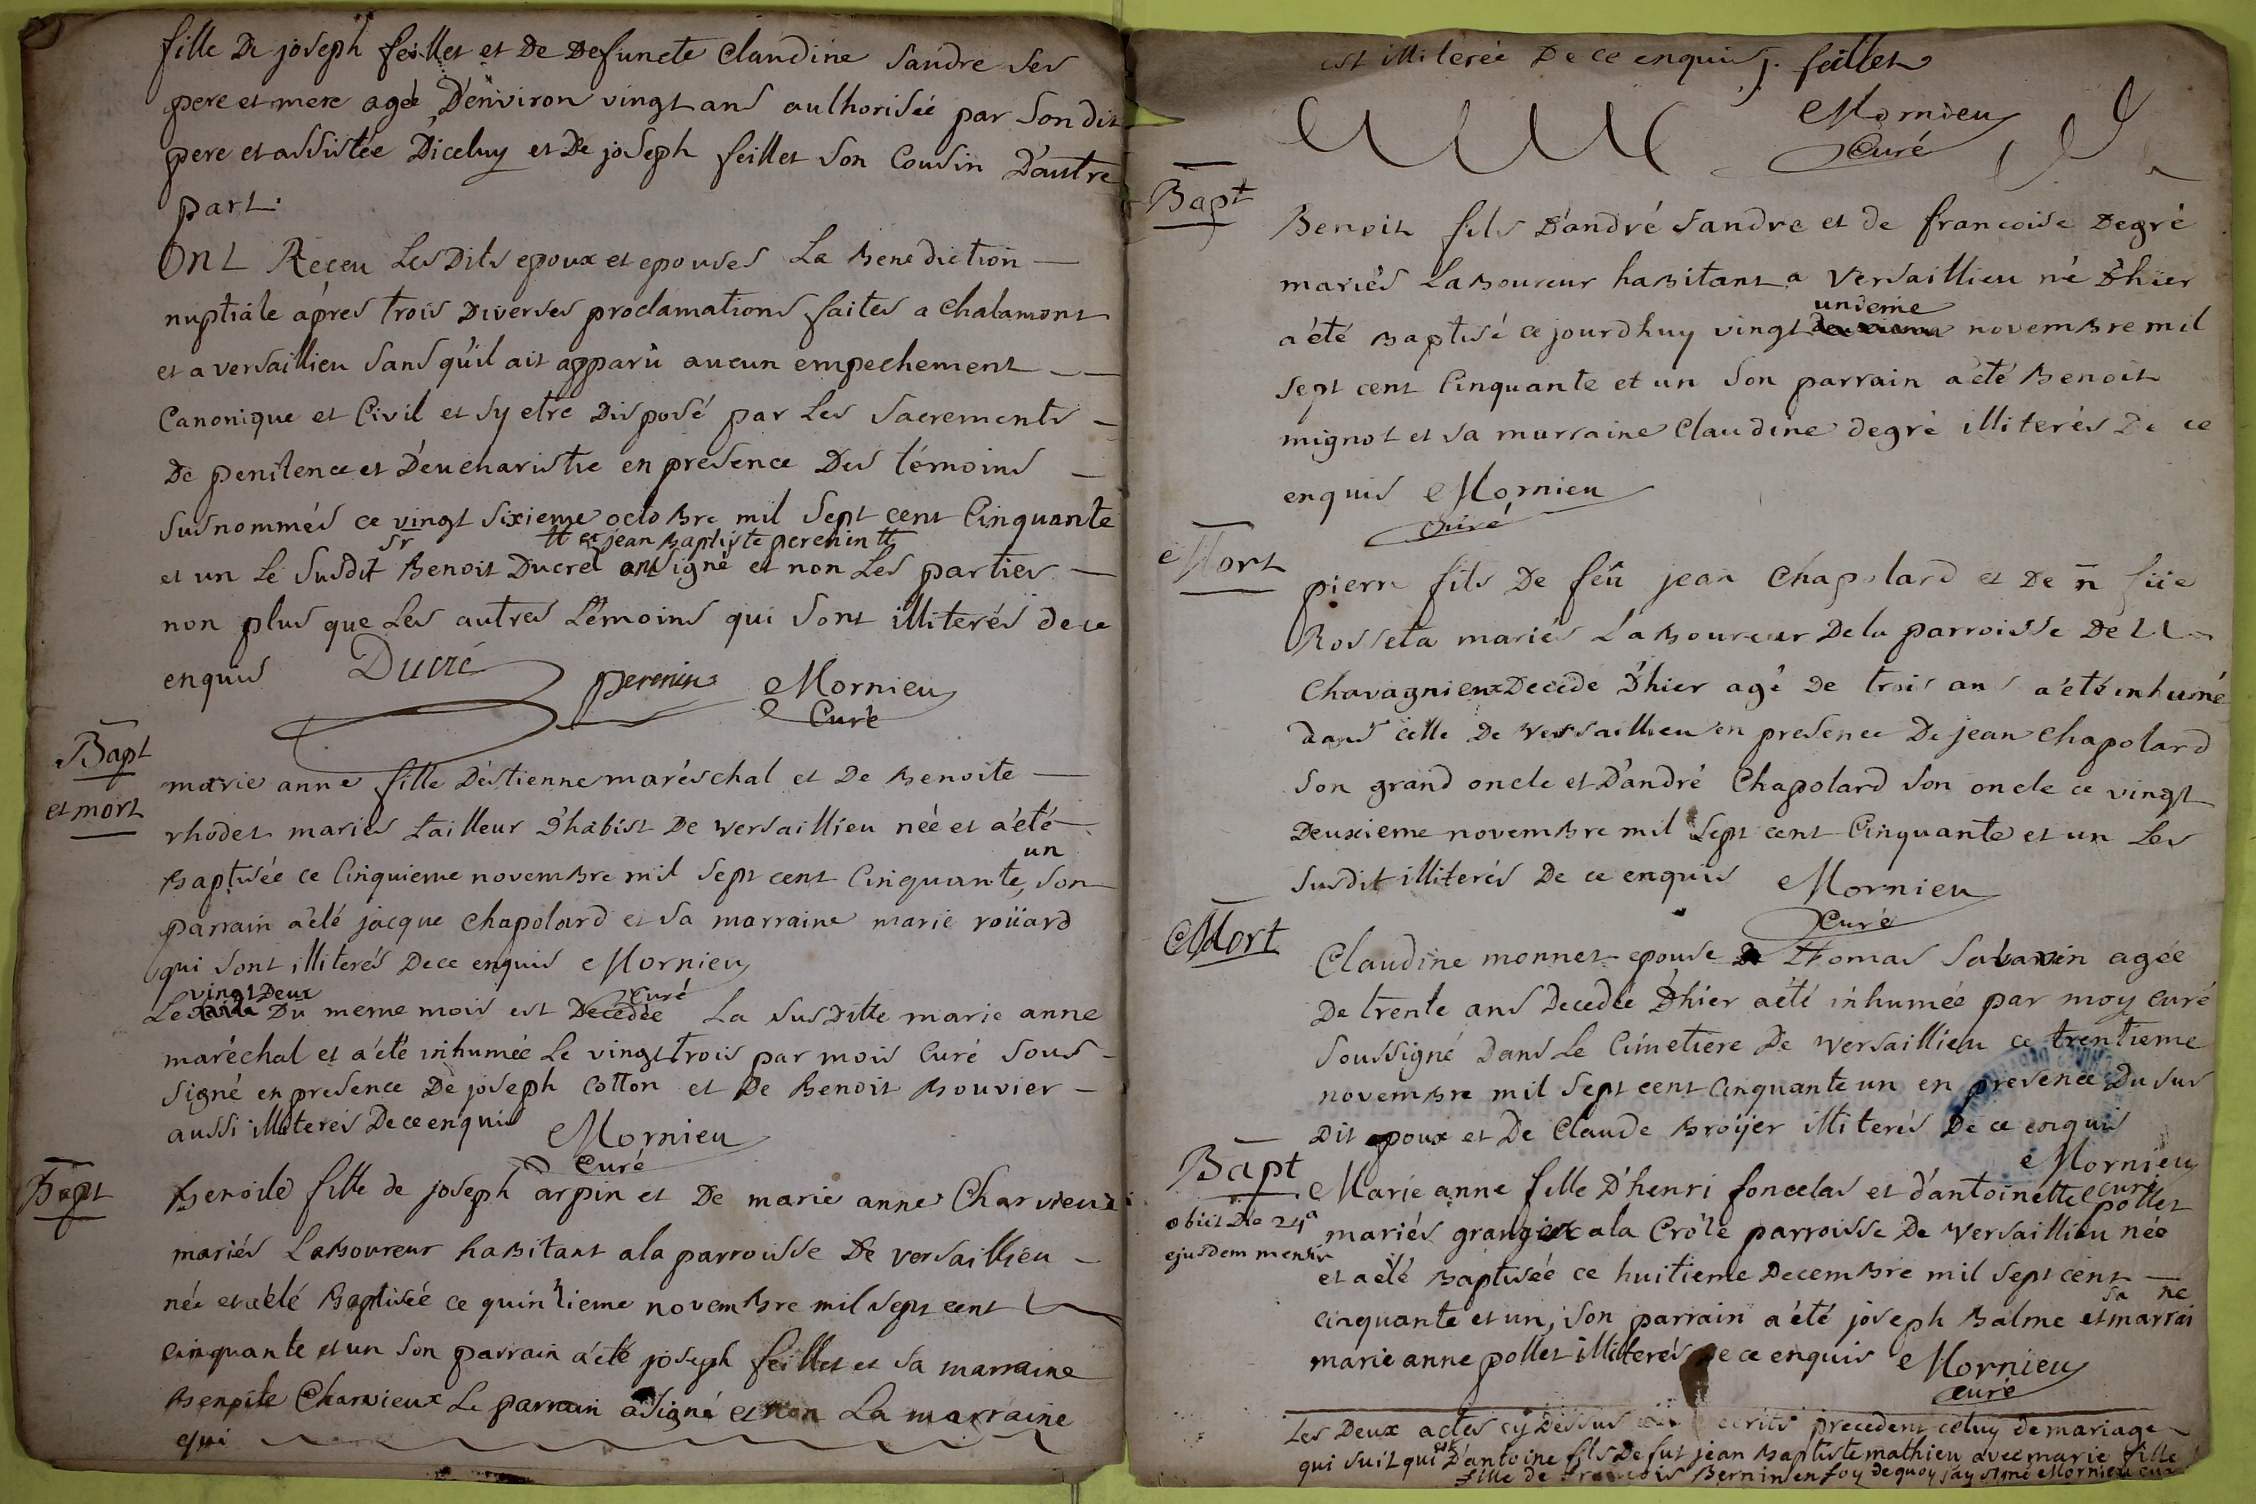 fille De joseph feillet et De Defuncte Claudine Sandre ses
pere et mere agée D'environ vingt ans authorisée par Son dit
pere et assistée D'iceluy et De joseph feillet son Cousin D'autre
part.
Ont Receu Les Dits epoux et epouses La Benediction
nuptiale apres trois Diverses proclamations faites a chalamont
et a versaillieu sans qu'il ait apparû aucun empechement
Canonique et Civil et sy etre Disposé par Les Sacrements
De penitence et D'eucharistie en presence Des témoins
susnommés ce vingt sixieme octobre mil sept cent Cinquante
et jean Baptiste perenin
et un Le susdit sr Benoit Ducrel ont signé et non Les parties
non plus que Les autres témoins qui sont illiterés de ce
enquis Ducré perenin Mornieu
Curé
Bapt
et mort
marie anne fille D'estienne maréschal et De Benoite
rhodet mariés tailleur D'habist De versaillieu née et a été
un
Baptisée ce Cinquieme novembre mil sept cent Cinquante, son
parrain a été jacque Chapolard et sa marraine marie roüard
qui sont illiterés De ce enquis Mornieu
Curé
vingt Deux
Le Du meme mois est Decedée La susditte marie anne
maréchal et a été inhumée Le vingt trois par mois Curé sous
signé en presence De joseph Cotton et De Benoit Bouvier
aussi illiterés De ce enquis Mornieu
Curé
Bapt
Benoite fille de joseph arpin et De marie anne Charvieux
mariés Laboureur habitant a la parroisse De versaillieu
née et a été Baptisée ce quinzieme novembre mil sept cent
cinquante et un son parrain a été joseph feillet et sa marraine
Benoite Charvieux Le parrain a signé et non La marraine
qui
est illiterée De ce enquis j. feillet
Mornieu
Curé
Bapt
Benoit fils D'andré Sandre et de francoise Degré
mariés Laboureur habitant a Versaillieu né D'hier
undeme
a été Baptisé ce jourdhuy vingt novembre mil
sept cent Cinquante et un son parrain a été Benoit
mignot et sa marraine Claudine degré illiterés De ce
enquis Mornieu
Curé
Mort
pierre fils De feû jean Chapolard et De n̄
Rosseta mariés Laboureur De la parroisse De
Chavagnieux Decedé D'hier agé De trois ans a été inhumé
dans celle De versaillieu en presence De jean Chapolard
son grand oncle et D'andré Chapolard son oncle ce vingt
Deuxieme novembre mil sept cent Cinquante et un Les
susdit illiterés De ce enquis Mornieu
Curé
Mort
Claudine monnet epouse De Thomas Savarin agée
De trente ans Decedée D'hier a été inhumée par moy curé
soussigné dans Le Cimetiere De versaillieu ce trentieme
novembre mil sept cent Cinquante un en presence Du sus
Dit epoux et De Claude Broÿer illiterés De ce enquis
Mornieu
curé
Bapt
obiit Die 24a
ejusdem mensis
Marie anne fille D'henri foncelas et d'antoinette pollet
mariés grangier a la Crôle parroisse De versaillieu née
et a été Baptisée ce huitieme Decembre mil sept cent
sa ne
cinquante et un, son parrain a été joseph Balme et marrai
marie anne pollet illiterés De ce enquis Mornieu
curé
Les Deux actes cy Dessus ecrits precedent celuy de mariage
qui suit qui est D'antoine fils De fut jean Baptiste mathieu avec marie fille
fille de francois Bernin en foy de quoy j'ay signé Mornieu curé